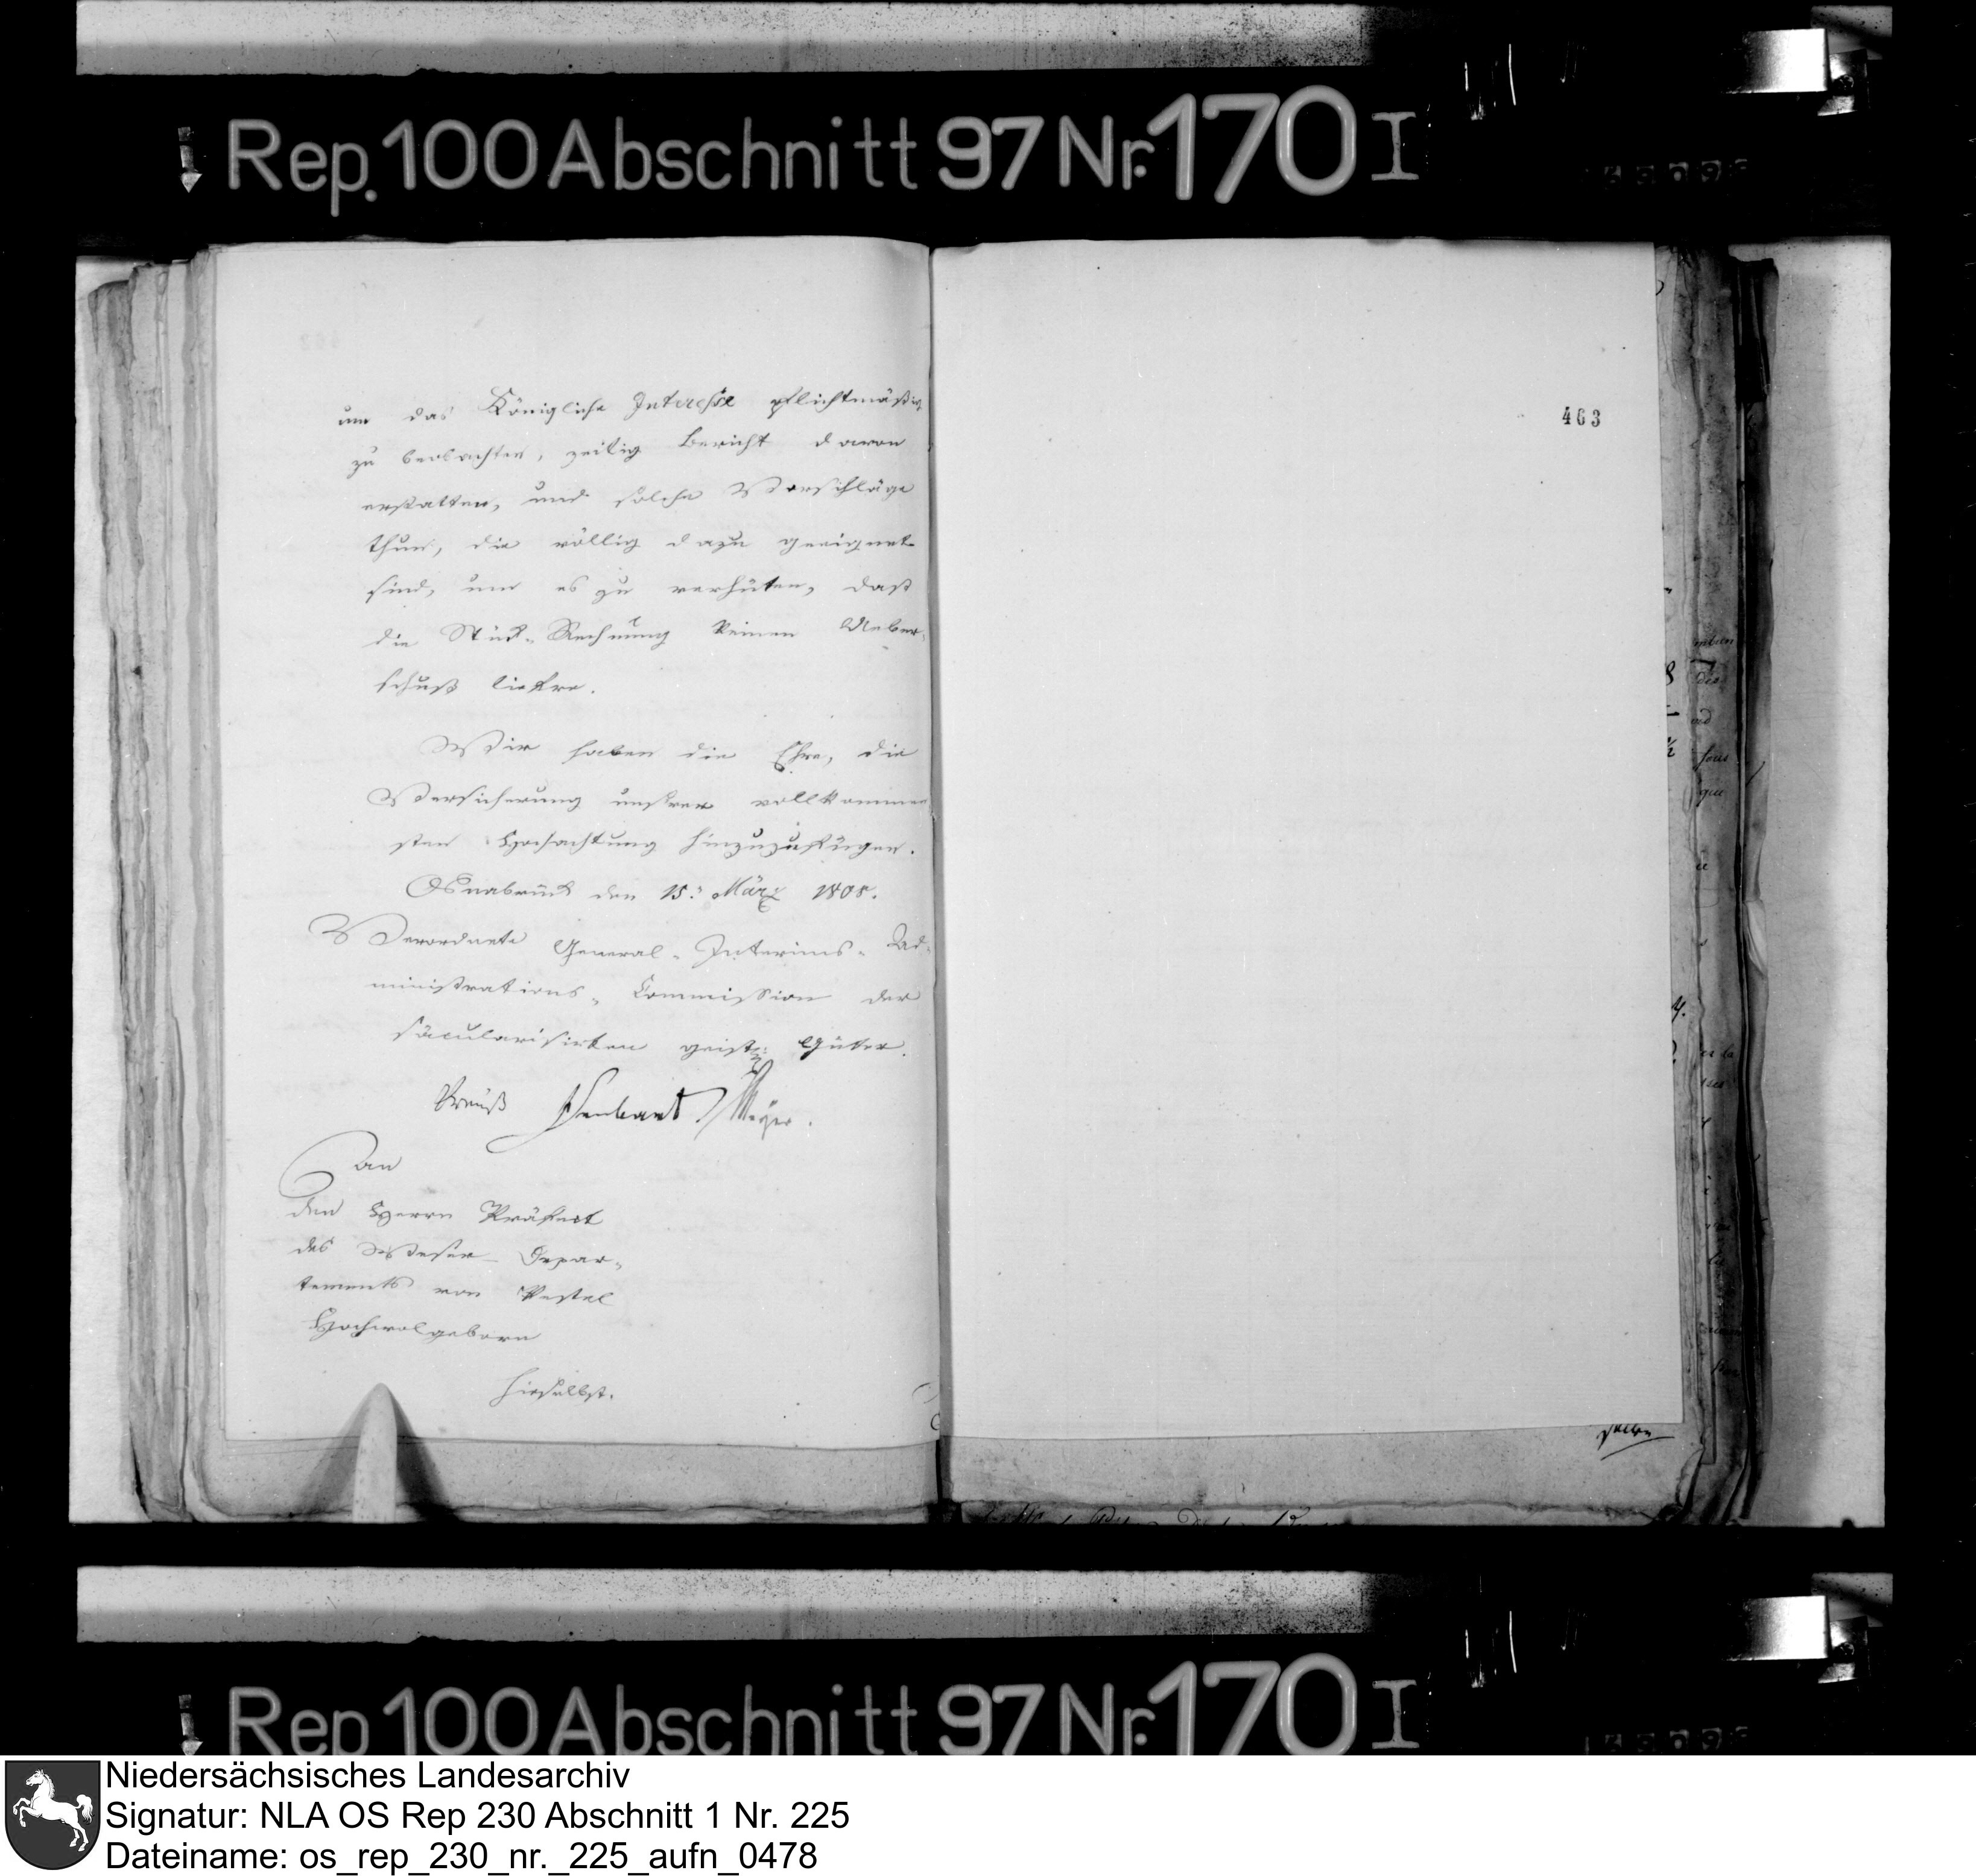 Rep. 100 Abschnitt 97 Nr. 170 I
um das Königliche Interesse pflichtmäßig
zu beobachten, zeitig Bericht davon
erstatten, und solche Vorschläge
thun, die völlig dazu geeignet
sind, um es zu verhüten, daß
die Stück-Rechnung keinen Ueber-
schuß liefre.
Wir haben die Ehre, die
Versicherung unsrer vollkommen
sten Hochachtung hinzuzufügen.
Osnabrück den 15. März 1808.
Verordnete General-Interims-Ad-
ministrations-Commission der
säcularisirten geistl: Güter.
Struckmann
An
den Herrn Präfect
des Weser-Depar-
tements von Pestel
Hochwolgeborn
hieselbst.
463
Rep 100 Abschnitt 97 Nr. 170 I
Niedersächsisches Landesarchiv
Signatur: NLA OS Rep 230 Abschnitt 1 Nr. 225
Dateiname: os_rep_230_nr._225_aufn_0478